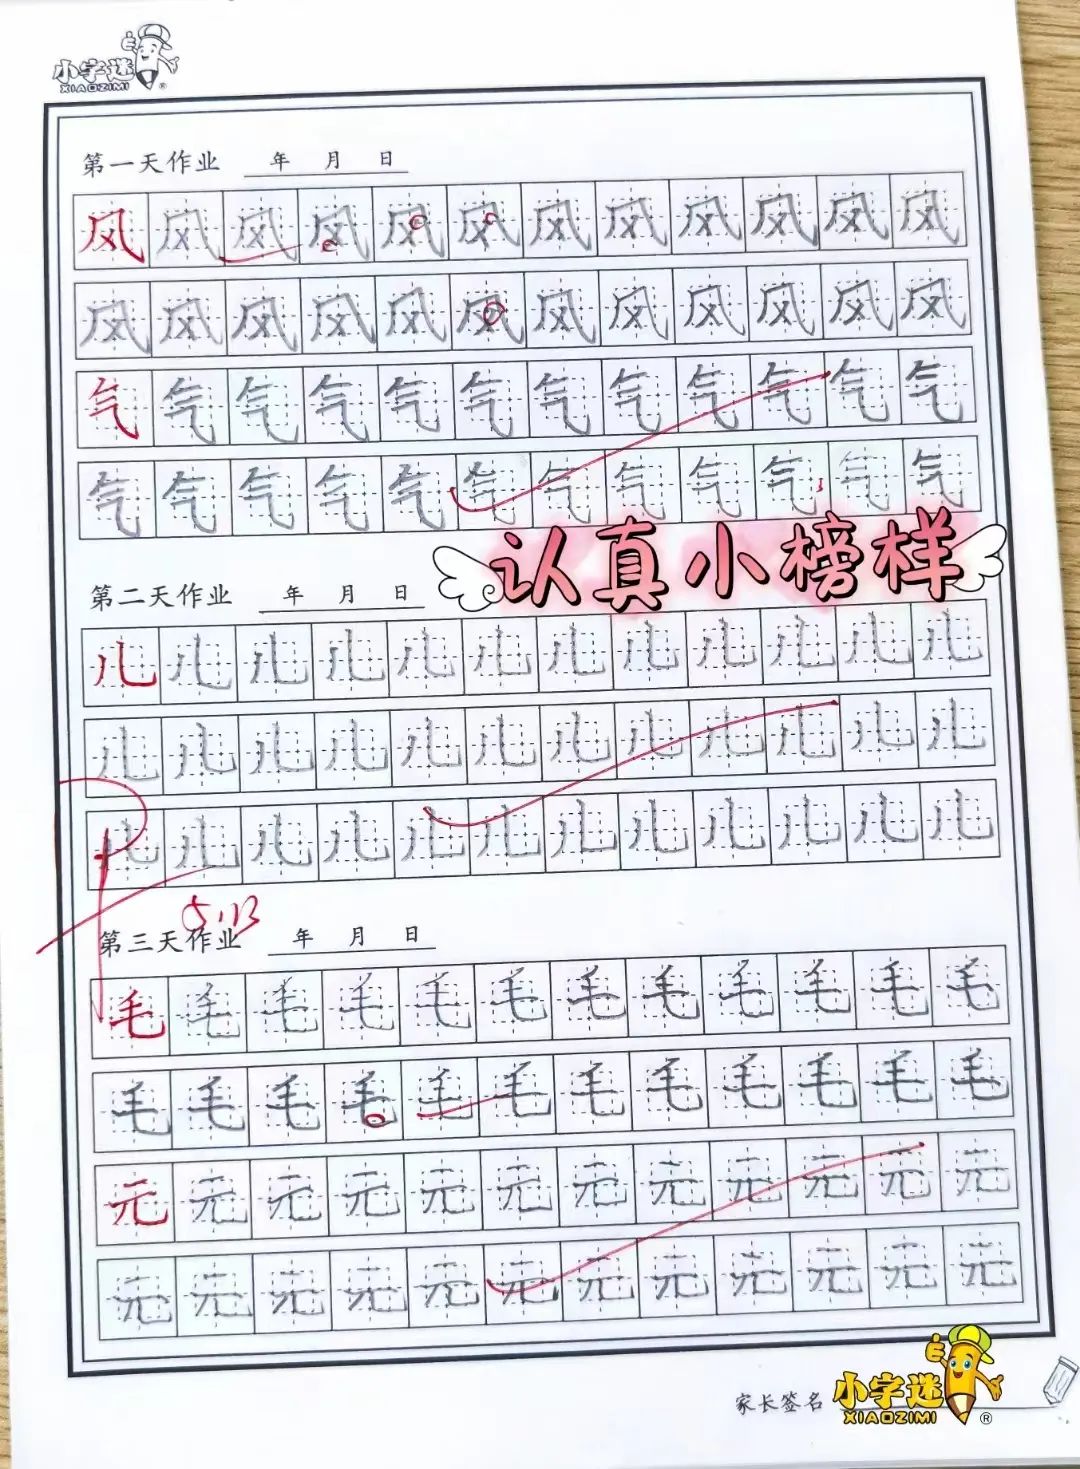 小字迷
XIAOZIMI ®
第一天作业 年 月 日
风风风风风风风风风风风风
风风风风风风风风风风风风
气气气气气气气气气气气气
气气气气气气气气气气气气
认真小榜样
第二天作业 年 月 日
儿儿儿儿儿儿儿儿儿儿儿儿
儿儿儿儿儿儿儿儿儿儿儿儿
儿儿儿儿儿儿儿儿儿儿儿儿
5.13
第三天作业 年 月 日
毛毛毛毛毛毛毛毛毛毛毛毛
毛毛毛毛毛毛毛毛毛毛毛毛
元元元元元元元元元元元元
元元元元元元元元元元元元
家长签名
小字迷
XIAOZIMI ®